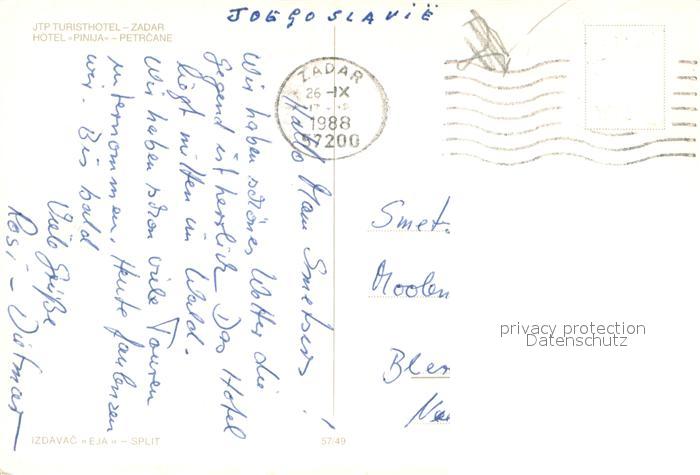 JOEGOSLAVIË
JTP TURISTHOTEL – ZADAR
HOTEL »PINIJA« – PETRČANE
ZADAR
26 -IX
1988
57200
Hallo Man Smetsers!
Wir haben schönes Wetter die
Gegend ist herrlich. Das Hotel
liegt mitten im Wald.
Wir haben schon viele Touren
unternommen, Heute faulenzen
wir. Bis bald
Viele Grüße
Rosi – Dietmar
Smet
Moolen
Bler
privacy protection
Datenschutz
IZDAVAČ »EJA« – SPLIT
57/49